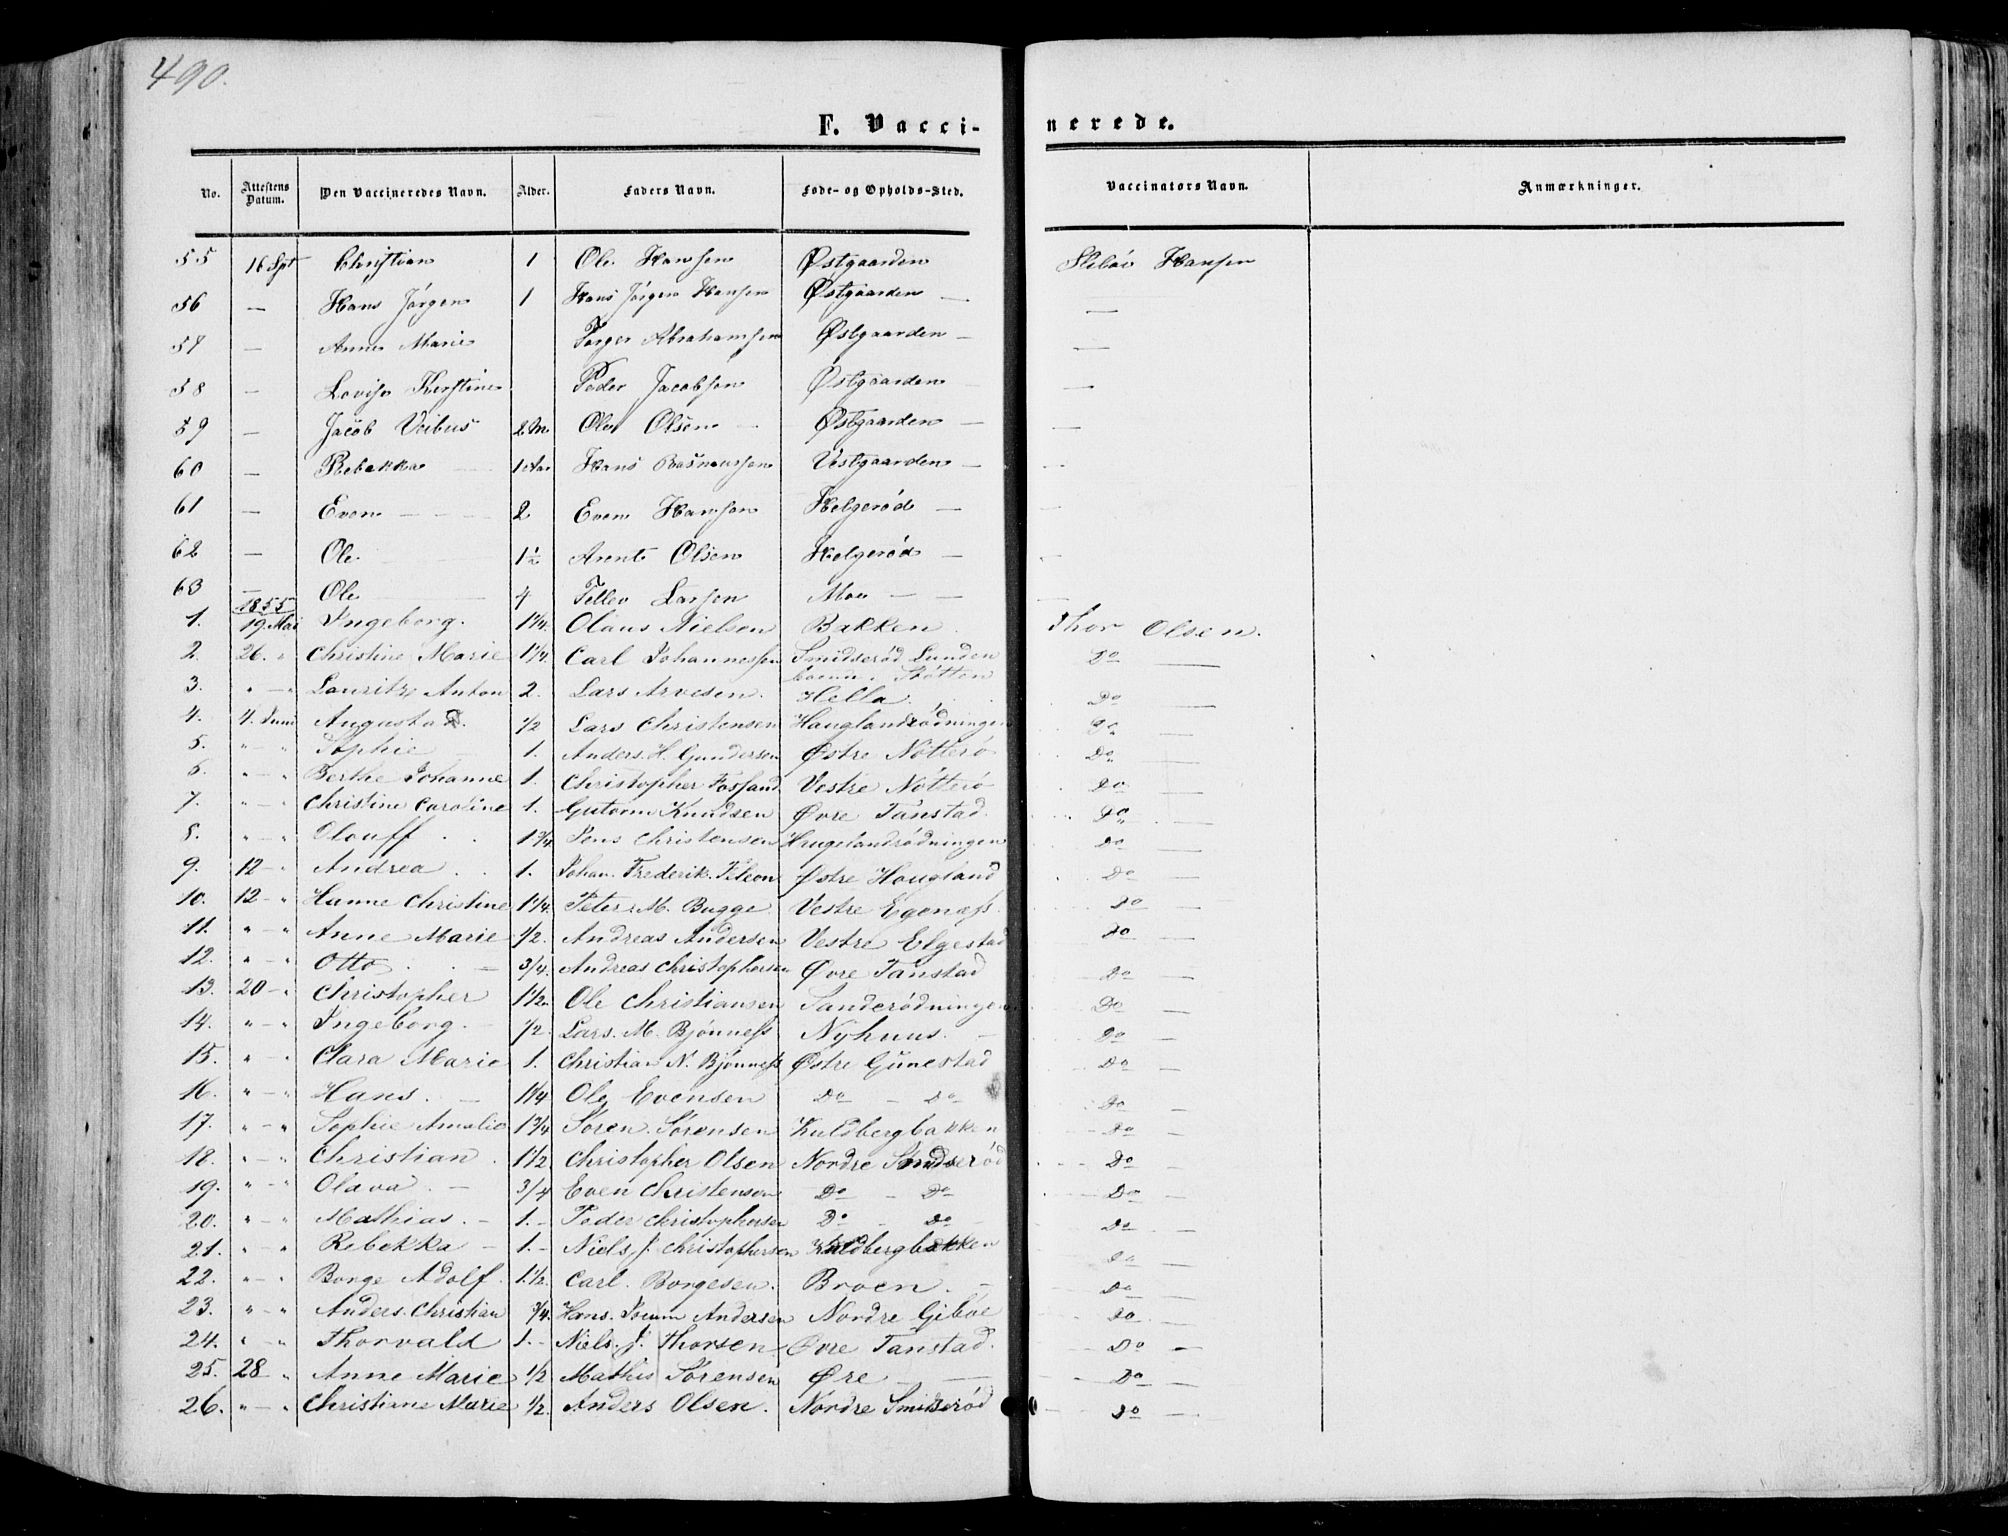 490.
F. Vacci- nerede.
No. Attestens Datum. Den Vaccineredes Navn. Alder. Faders Navn. Føde- og Opholds-Sted. Vaccinators Navn. Anmærkninger.
55 16 Spt Christian 1 Ole Hansen Østgaarden Hansen
56 — Hans Jørgen 1 Hans Jørgen Hansen Østgaarden — —
57 — Anne Marie Abrahamsen Østgaarden — —
58 — Lovise Kirstine Peder Jacobsen Østgaarden — —
59 — Jacob 2 M Ole Olsen — Østgaarden — —
60 — Rebekka 1 Aar Hans Rasmussen Vestgaarden — —
61 — Even 2 Even Hansen Helgerød — —
62 — Ole 1½ Arent Olsen Helgerød — —
63 — Ole 4 Tellev Larsen Moe — — —
1855
1. 19. Mai Ingeborg. 1¼. Olaus Nielsen Bakken Thor Olsen.
2. 26. " Christine Marie 1¼. Carl Johannessen Smidserød Lunden Do —
3. " — " Lauritz Anton 2. Lars Arvesen. Hella Do —
4. 4. Juni Augusta ½ Lars Christensen Hauglandrødningen Do —
5. " — " Sophie 1. Anders. H. Gundersen Østre Nötterö Do —
6. " — " Berthe Johanne 1. Christopher Fossand Vestre Nötterö Do —
7. " — " Christine Caroline 1. Gutorm Knudsen Øvre Tanstad. Do —
8. " — " Olouff 1¾ Jens Christensen Haugelandrødningen Do —
9. 12 — " Andrea 1. Johan. Frederik. Østre Hougland Do —
10. 12 — " Hanne Christine 1¼. Peter. M. Bugge Vestre Egenæss. Do —
11. " — " Anne Marie ½. Andreas Andersen Vestre Elgestad Do —
12. " — " Otto. — ¾. Andreas Christophersen Øvre Tanstad Do —
13. 20 — " Christopher 1½. Ole Christiansen Sanderødningen Do —
14. " — " Ingeborg. — ½. Lars. M. Bjønness Nyhuus. — Do —
15. " — " Clara Marie 1. Christian N. Bjønness Østre Gunestad Do —
16. " — " Hans. — 1¼ Ole Evensen Do — Do Do —
17. " — " Sophie Amalie 1¾ Søren. Sørensen Kuldbergbakken Do —
18. " — " Christian 1½ Christopher Olsen Nordre Smidserød Do —
19. " — " Olava. — ¾ Even Christensen Do — Do Do —
20. " — " Mathias. — 1. — Peder Christophersen Do — Do — Do —
21. " — " Rebekka — 1. — Niels J. Christophersen Kuldbergbakken Do —
22. " — " Borge Adolf. 1½. Carl. Borgesen. Broen. — Do —
23. " — " Anders. Christian ¾. Hans. Andersen Nordre Giböe Do —
24. " — " Thorvald 1. — Niels. J. Thorsen Øvre Tanstad. Do —
25. 28 " Anne Marie ½ Mathis Sörensen Øre — — Do —
26. " — " Christiane Marie ½. Anders Olsen. Nordre Smidserød Do —